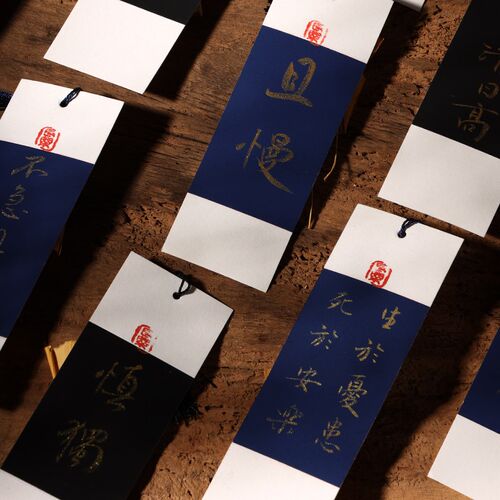 且慢
慎獨
生於憂患
死於安樂
日高
不急